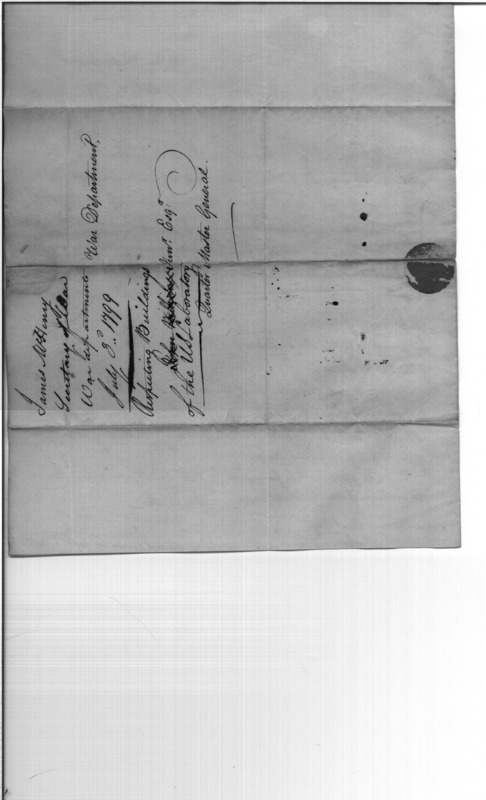 War Department,
James McHenry
Secretary of War
War department
July 3d. 1799
Respecting Buildings
of the US Laboratory
John Esqr.
Quarter Master General.